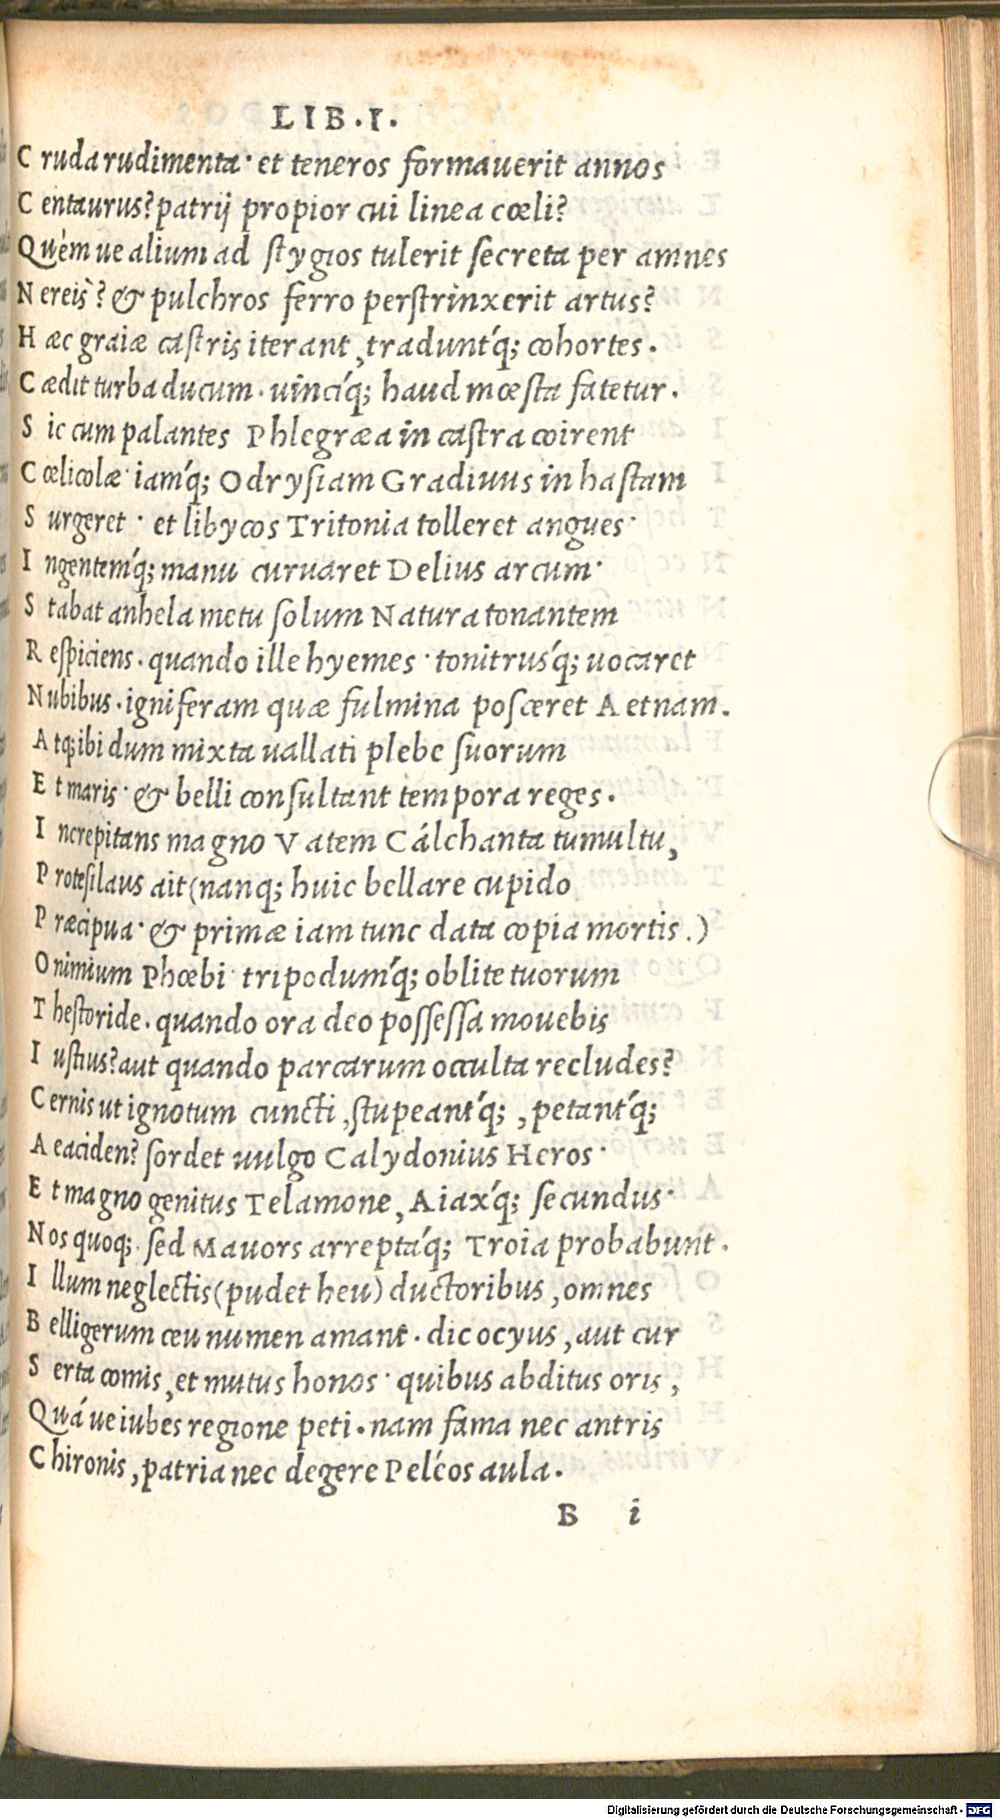 LIB.I.
C ruda rudimenta· et teneros formauerit annos
C entaurus? patrij propior cui linea cœli?
Quem ue alium ad stygios tulerit secreta per amnes
N ereis? & pulchros ferro perstrinxerit artus?
H æc graiæ castris iterant, tradunt'q; cohortes.
C ædit turba ducum· uinci'q; haud mœsta fatetur.
S ic cum palantes Phlegræa in castra coirent
C œlicolæ· iam'q; Odrysiam Gradiuus in hastam
S urgeret· et libycos Tritonia tolleret angues·
I ngentem'q; manu curuaret Delius arcum·
S tabat anhela metu solum Natura tonantem
R espiciens· quando ille hyemes· tonitrus'q; uocaret
N ubibus· igniferam quæ fulmina posceret Aetnam.
A tq; ibi dum mixta uallati plebe suorum
E t maris· & belli consultant tempora reges.
I ncrepitans magno Vatem Cálchanta tumultu,
P rotesilaus ait (nanq; huic bellare cupido
P ræcipua· & primæ iam tunc data copia mortis.)
O nimium Phœbi· tripodum'q; oblite tuorum
T hestoride· quando ora deo possessa mouebis
I ustius? aut quando parcarum occulta recludes?
C ernis ut ignotum cuncti, stupeant'q;, petant'q;
A eaciden? sordet uulgo Calydonius Heros·
E t magno genitus Telamone, Aiax'q; secundus·
N os quoq;· sed Mauors arrepta'q; Troia probabunt.
I llum neglectis (pudet heu) ductoribus, omnes
B elligerum ceu numen amant. dic ocyus, aut cur
S erta comis, et mutus honos· quibus abditus oris,
Quá ue iubes regione peti. nam fama nec antris
C hironis, patria nec degere Peléos aula.
B i
Digitalisierung gefördert durch die Deutsche Forschungsgemeinschaft - DFG